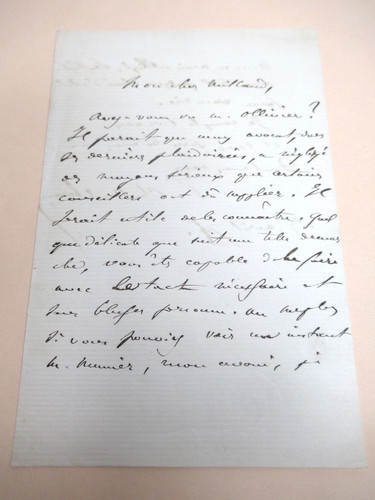 Mon cher Millaud,
Avez-vous vu M. Ollivier ?
Il parait que mon avocat, dans
ses dernières plaidoiries, a négligé
des moyens sérieux que certains
conseillers ont dû suppléer. Il
serait utile de les connaître. Quel
que délicate que soit une telle démar
che, vous êtes capable de la faire
avec le tact nécessaire et
sans blesser personne.
Si vous pouviez voir un instant
M. , mon avoué, je